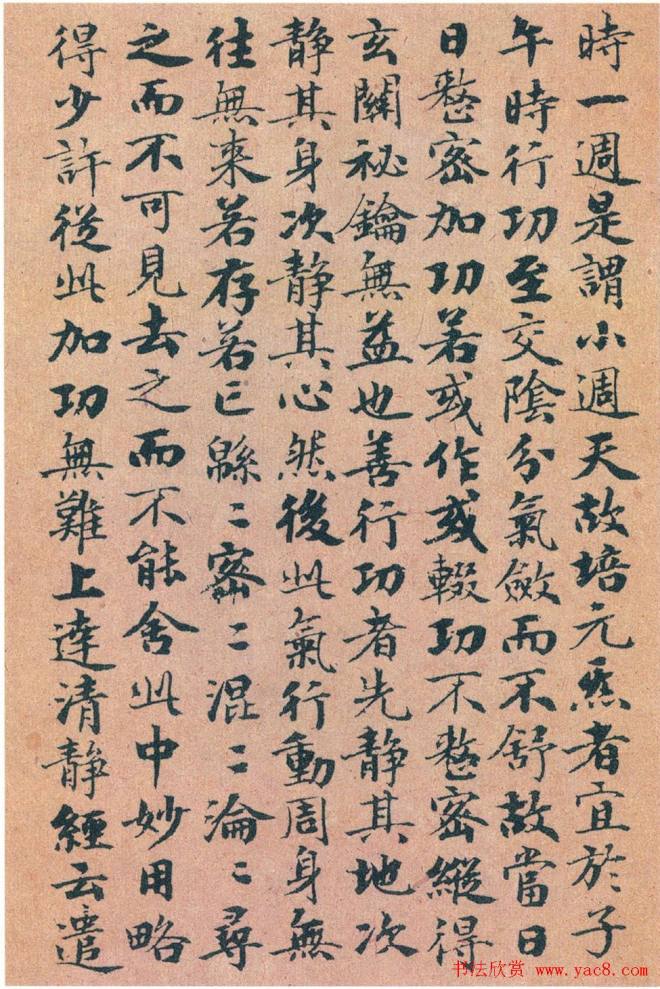 時一週是謂小週天故培元炁者宜於子
午時行功至交陰分氣斂而不舒故當日
日整密加功若或作或輟功不整密縱得
玄關祕鑰無益也善行功者先靜其地次
靜其身次靜其心然後此氣行動周身無
往無来若存若亡緜〻密〻混〻淪〻尋
之而不可見去之而不能舍此中妙用略
得少許從此加功無難上達清靜經云遣
书法欣赏 www.yac8.com